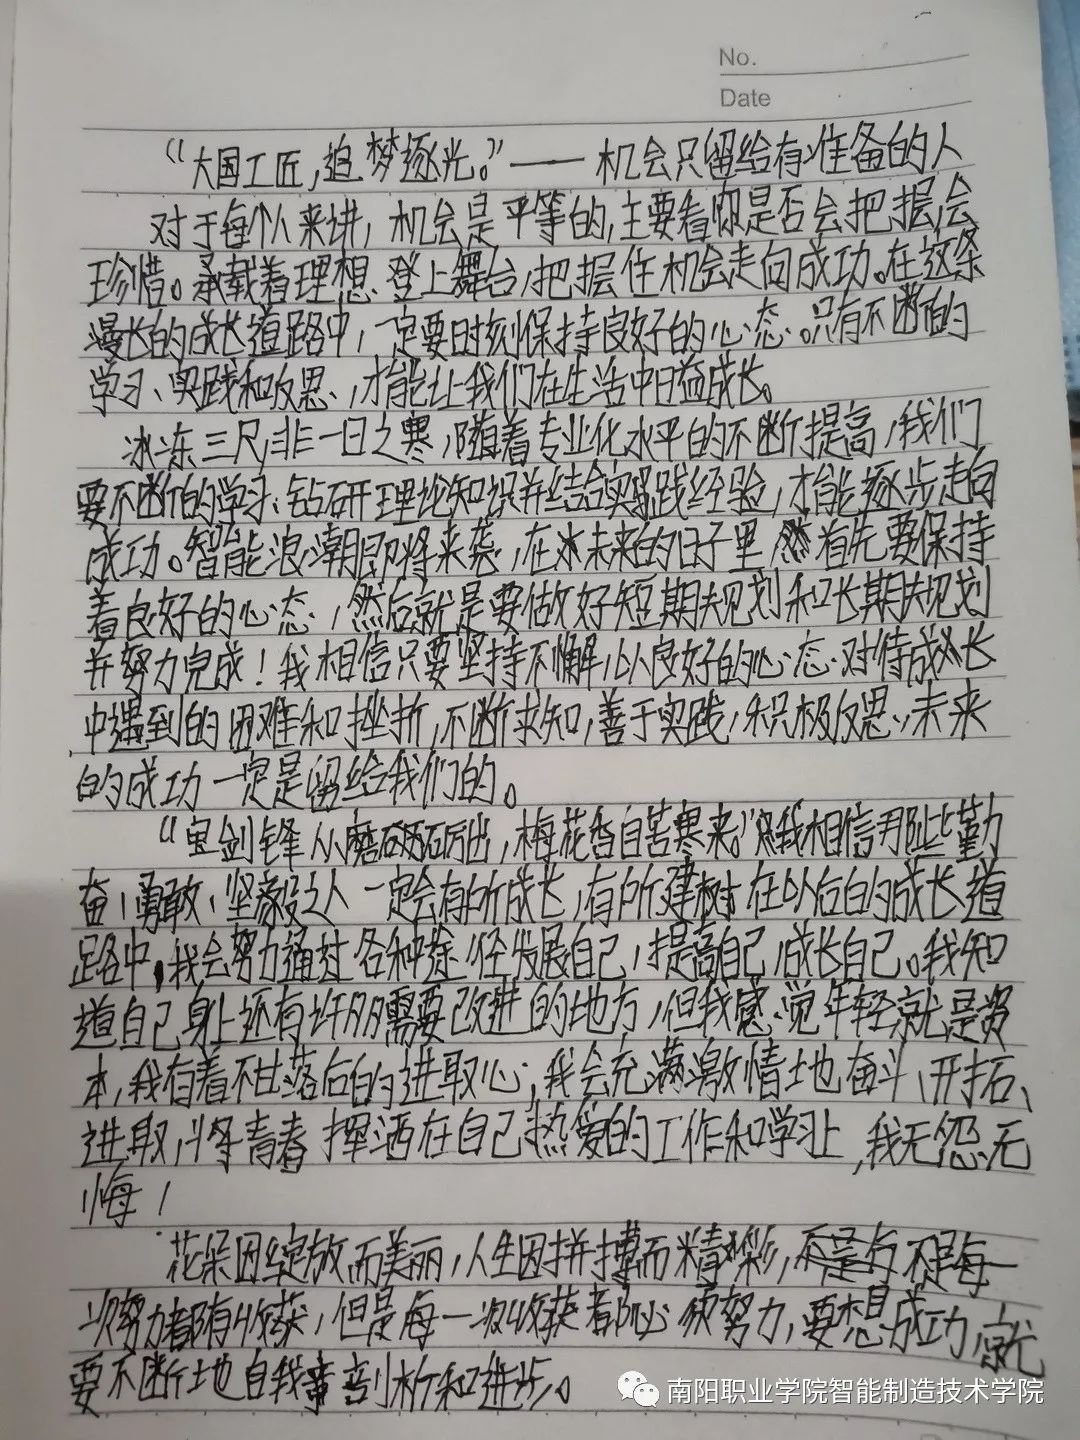 No.
Date
“大国工匠,追梦逐光。”——机会只留给有准备的人
对于每个人来讲,机会是平等的,主要看你是否会把握,会
珍惜。承载着理想、登上舞台,把握住机会走向成功。在这条
漫长的成长道路中,一定要时刻保持良好的心态。只有不断的
学习、实践和反思,才能让我们在生活中日益成长。
冰冻三尺,非一日之寒,随着专业化水平的不断提高,我们
要不断的学习、钻研理论知识并结合实践经验,才能逐步走向
成功。智能浪潮即将来袭,在未来的日子里,首先要保持
着良好的心态,然后就是要做好短期规划和长期规划
并努力完成!我相信只要坚持不懈,以良好的心态对待成长
中遇到的困难和挫折,不断求知,善于实践,积极反思,未来
的成功一定是留给我们的。
“宝剑锋从磨砺出,梅花香自苦寒来。”我相信那些勤
奋、勇敢、坚毅之人一定会有所成长,有所建树在以后的成长道
路中,我会努力通过各种途径发展自己,提高自己,成长自己。我知
道自己身上还有许多需要改进的地方,但我感觉年轻就是资
本,我有着不甘落后的进取心,我会充满激情地奋斗、开拓、
进取,将青春挥洒在自己热爱的工作和学习上,我无怨无
悔!
花朵因绽放而美丽,人生因拼搏而精彩,不是每一
次努力都有收获,但是每一次收获都必须努力,要想成功,就
要不断地自我剖析和进步。
南阳职业学院智能制造技术学院